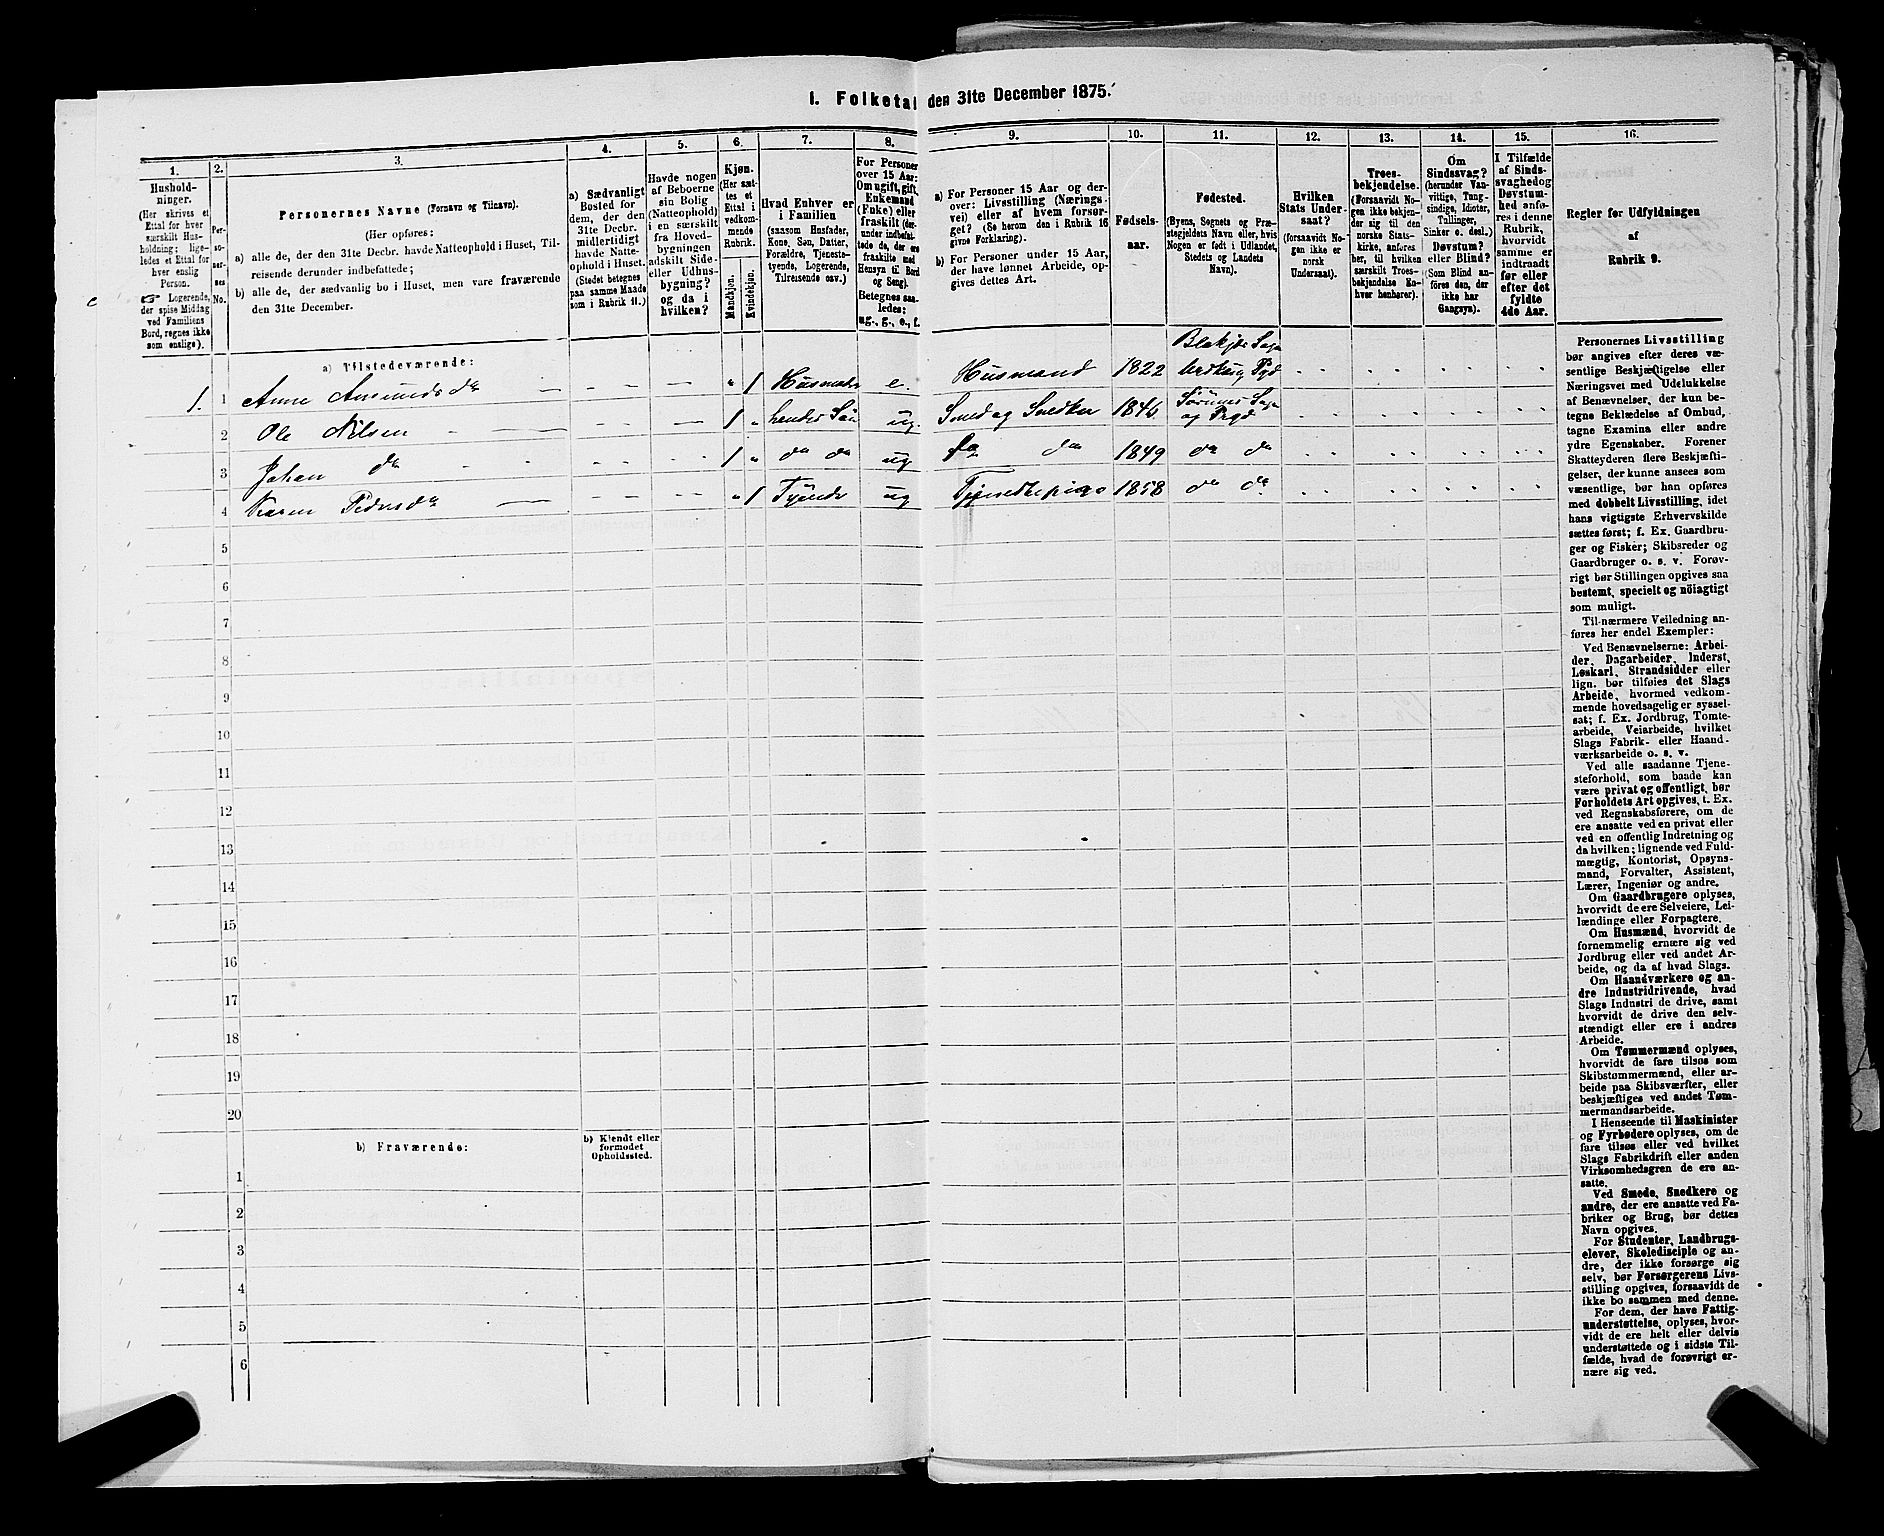 I. Folketal den 31te December 1875.
1.
Hushold-
ninger.
(Her skrives et
Ettal for hver
særskilt Hus-
holdning; lige-
ledes et Ettal for
hver enslig
Person.
☞ Logerende,
der spise Middag
ved Familiens
Bord, regnes ikke
som enslige).
2.
Per-
so-
ner-
nes
No.
3.
Personernes Navne (Fornavn og Tilnavn).
(Her opføres:
a) alle de, der den 31te Decbr. havde Natteophold i Huset, Til-
reisende derunder indbefattede;
b) alle de, der sædvanlig bo i Huset, men vare fraværende
den 31te December.
4.
a) Sædvanligt
Bosted for
dem, der den
31te Decbr.
midlertidigt
havde Natte-
ophold i Huset.
(Stedet betegnes
paa samme Maade
som i Rubrik 11.)
5.
Havde nogen
af Beboerne
sin Bolig
(Natteophold)
i en særskilt
fra Hoved-
bygningen
adskilt Side-
eller Udhus-
bygning?
og da i
hvilken?
6.
Kjøn.
(Her sæt-
tes et
Ettal i
vedkom-
mende
Rubrik.
Mandkjøn.
Kvindekjøn.
7.
Hvad Enhver er
i Familien
(saasom Husfader,
Kone, Søn, Datter,
Forældre, Tjeneste-
tyende, Logerende,
Tilreisende osv.)
8.
For Personer
over 15 Aar:
Om ugift, gift,
Enkemand
(Enke) eller
fraskilt (der-
under indbefat-
tede de, der ere
fraskilte med
Hensyn til Bord
og Seng).
Betegnes saa-
ledes:
ug., g., e., f.
9.
a) For Personer 15 Aar og der-
over: Livsstilling (Nærings-
vei) eller af hvem forsør-
get? (Se herom den i Rubrik 16
givne Forklaring).
b) For Personer under 15 Aar,
der have lønnet Arbeide, op-
gives dettes Art.
10.
Fødsels-
aar.
11.
Fødested.
(Byens, Sognets og Præ-
stegjeldets Navn eller, hvis
Nogen er født i Udlandet,
Stedets og Landets
Navn).
12.
Hvilken
Stats Under-
saat?
(forsaavidt No-
gen ikke er
norsk
Undersaat).
13.
Troes-
bekjendelse.
(Forsaavidt No-
gen ikke bekjen-
der sig til den
norske Stats-
kirke, anføres
her, til hvilken
særskilt Troes-
bekjendelse En-
hver henhører).
14.
Om
Sindssvag?
(herunder Van-
vittige, Tung-
sindige, Idioter,
Tullinger,
Sinker o. desl.)
Døvstum?
eller Blind?
(Som Blind an-
føres den, der
ikke har
Gangsyn).
15.
I Tilfælde
af Sinds-
svaghed og
Døvstum-
hed anfø-
res i denne
Rubrik,
hvorvidt
samme er
indtraadt
før eller
efter det
fyldte
4de Aar.
16.
Regler for Udfyldningen
af
Rubrik 9.
a) Tilstedeværende:
1. 1 Anne Amundsda — — — „ 1 e. Husmand 1822
2 Ole Nilsen — — — 1 „ hendes Søn ug. Smed og Snedker Sørumes Sogn og Pregd
3 Johan do — — — 1 „ do do ug do do 1849 do do
4 Karen Pedersda — — — „ 1 Tyende ug Tjenestepige 1858 do do
5
6
7
8
9
10
11
12
13
14
15
16
17
18
19
20
b) Fraværende:
b) Kjendt eller
formodet
Opholdssted.
1
2
3
4
5
6
Personernes Livsstilling
bør angives efter deres væ-
sentlige Beskjæftigelse eller
Næringsvei med Udelukkelse
af Benævnelser, der kun be-
tegne Beklædelse af Ombud,
tagne Examina eller andre
ydre Egenskaber. Forener
Skatteyderen flere Beskjæfti-
gelser, der kunne ansees som
væsentlige, bør han opføres
med dobbelt Livsstilling, idet
hans vigtigste Erhvervskilde
sættes først; f. Ex. Gaardbru-
ger og Fisker; Skibsreder og
Gaardbruger o. s. v. Forøv-
rigt bør Stillingen opgives saa
bestemt, specielt og nöiagtigt
som muligt.
Til nærmere Veiledning an-
føres her endel Exempler:
Ved Benævnelserne: Arbei-
der, Dagarbeider, Inderst,
Løskarl, Strandsidder eller
lign. bør tilføies det Slags
Arbeide, hvormed vedkom-
mende hovedsagelig er syssel-
sat; f. Ex. Jordbrug, Tomte-
arbeide, Veiarbeide, hvilket
Slags Fabrik- eller Haand-
værksarbeide o. s. v.
Ved alle saadanne Tjene-
steforhold, som baade kan
være privat og offentligt, bør
Forholdets Art opgives, f. Ex.
ved Regnskabsførere, om de
ere ansatte ved en privat eller
ved en offentlig Indretning og
da hvilken; lignende ved Fuld-
mægtig, Kontorist, Opsyns-
mand, Forvalter, Assistent,
Lærer, Ingeniør og andre.
Om Gaardbrugere oplyses,
hvorvidt de ere Selveiere, Lei-
lændinge eller Forpagtere.
Om Husmænd, hvorvidt de
fornemmelig ernære sig ved
Jordbrug eller ved andet Ar-
beide, og da af hvad Slags.
Om Haandværkere og an-
dre Industridrivende, hvad
Slags Industri de drive, samt
hvorvidt de drive den selv-
stændigt eller ere i andres
Arbeide.
Om Tømmermænd oplyses,
hvorvidt de fare tilsøs som
Skibstømmermænd, eller ar-
beide paa Skibsværfter, eller
beskjæftiges ved andet Tøm-
mermandsarbeide.
I Henseende til Maskinister
og Fyrbødere oplyses, om de
fare tilsøs eller ved hvilket
Slags Fabrikdrift eller anden
Virksomhedsgren de ere an-
satte.
Ved Smede, Snedkere og
andre, der ere ansatte ved Fa-
briker og Brug, bør dettes
Navn opgives.
For Studenter, Landbrugs-
elever, Skoledisciple og an-
dre, der ikke forsørge sig
selv, bør Forsørgerens Livs-
stilling opgives, forsaavidt de
ikke bo sammen med denne.
For dem, der have Fattig-
understøttelse, oplyses, hvor-
vidt de ere helt eller delvis
understøttede og i sidste Til-
fælde, hvad de forøvrigt er-
nære sig ved.